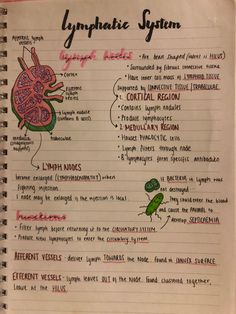 Lymphatic System
Afferent lymph
vessels
lymph nodes
• Are bean shaped (indent is HILUS)
• Surrounded by fibrous connective tissue
• Have inner mass of LYMPHOID TISSUE
supported by CONNECTIVE TISSUE (TRABECULAE)
Cortex
Efferent
vessels
Lymph nodule
(contains B cells)
medulla
trabeculae
1. CORTICAL REGION
• Contains lymph nodules
• Produce lymphocytes
2. MEDULLARY REGION
• Houses PHAGOCYTIC CELLS
• Lymph filters through node
• B lymphocytes form specific antibodies
LYMPH NODES
become enlarged (LYMPHADENOPATHY) when
fighting infection
1 node may be enlarged is the infection is local
If BACTERIA in lymph node
not destroyed
they could enter the blood
and cause the ANIMAL to
develop SEPTICAEMIA
functions
• Filter lymph before returning it to the CIRCULATORY SYSTEM
• Produce new lymphocytes to enter the circulatory system
AFFERENT VESSELS: deliver lymph TOWARDS the NODE, found on CONVEX SURFACE
EFFERENT VESSELS: Lymph leaves OUT of the NODE, found clustered together,
leave at the HILUS